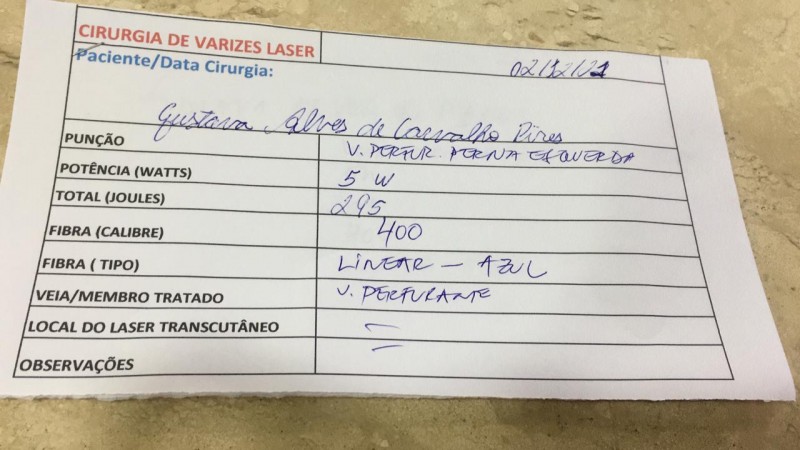 CIRURGIA DE VARIZES LASER
Paciente/Data Cirurgia: 02/12/21
Gustavo Alves de Carvalho Pires
PUNÇÃO V. PERFUR. PERNA ESQUERDA
POTÊNCIA (WATTS) 5 W
TOTAL (JOULES) 295
FIBRA (CALIBRE) 400
FIBRA ( TIPO) LINEAR – AZUL
VEIA/MEMBRO TRATADO V. PERFURANTE
LOCAL DO LASER TRANSCUTÂNEO –
OBSERVAÇÕES –